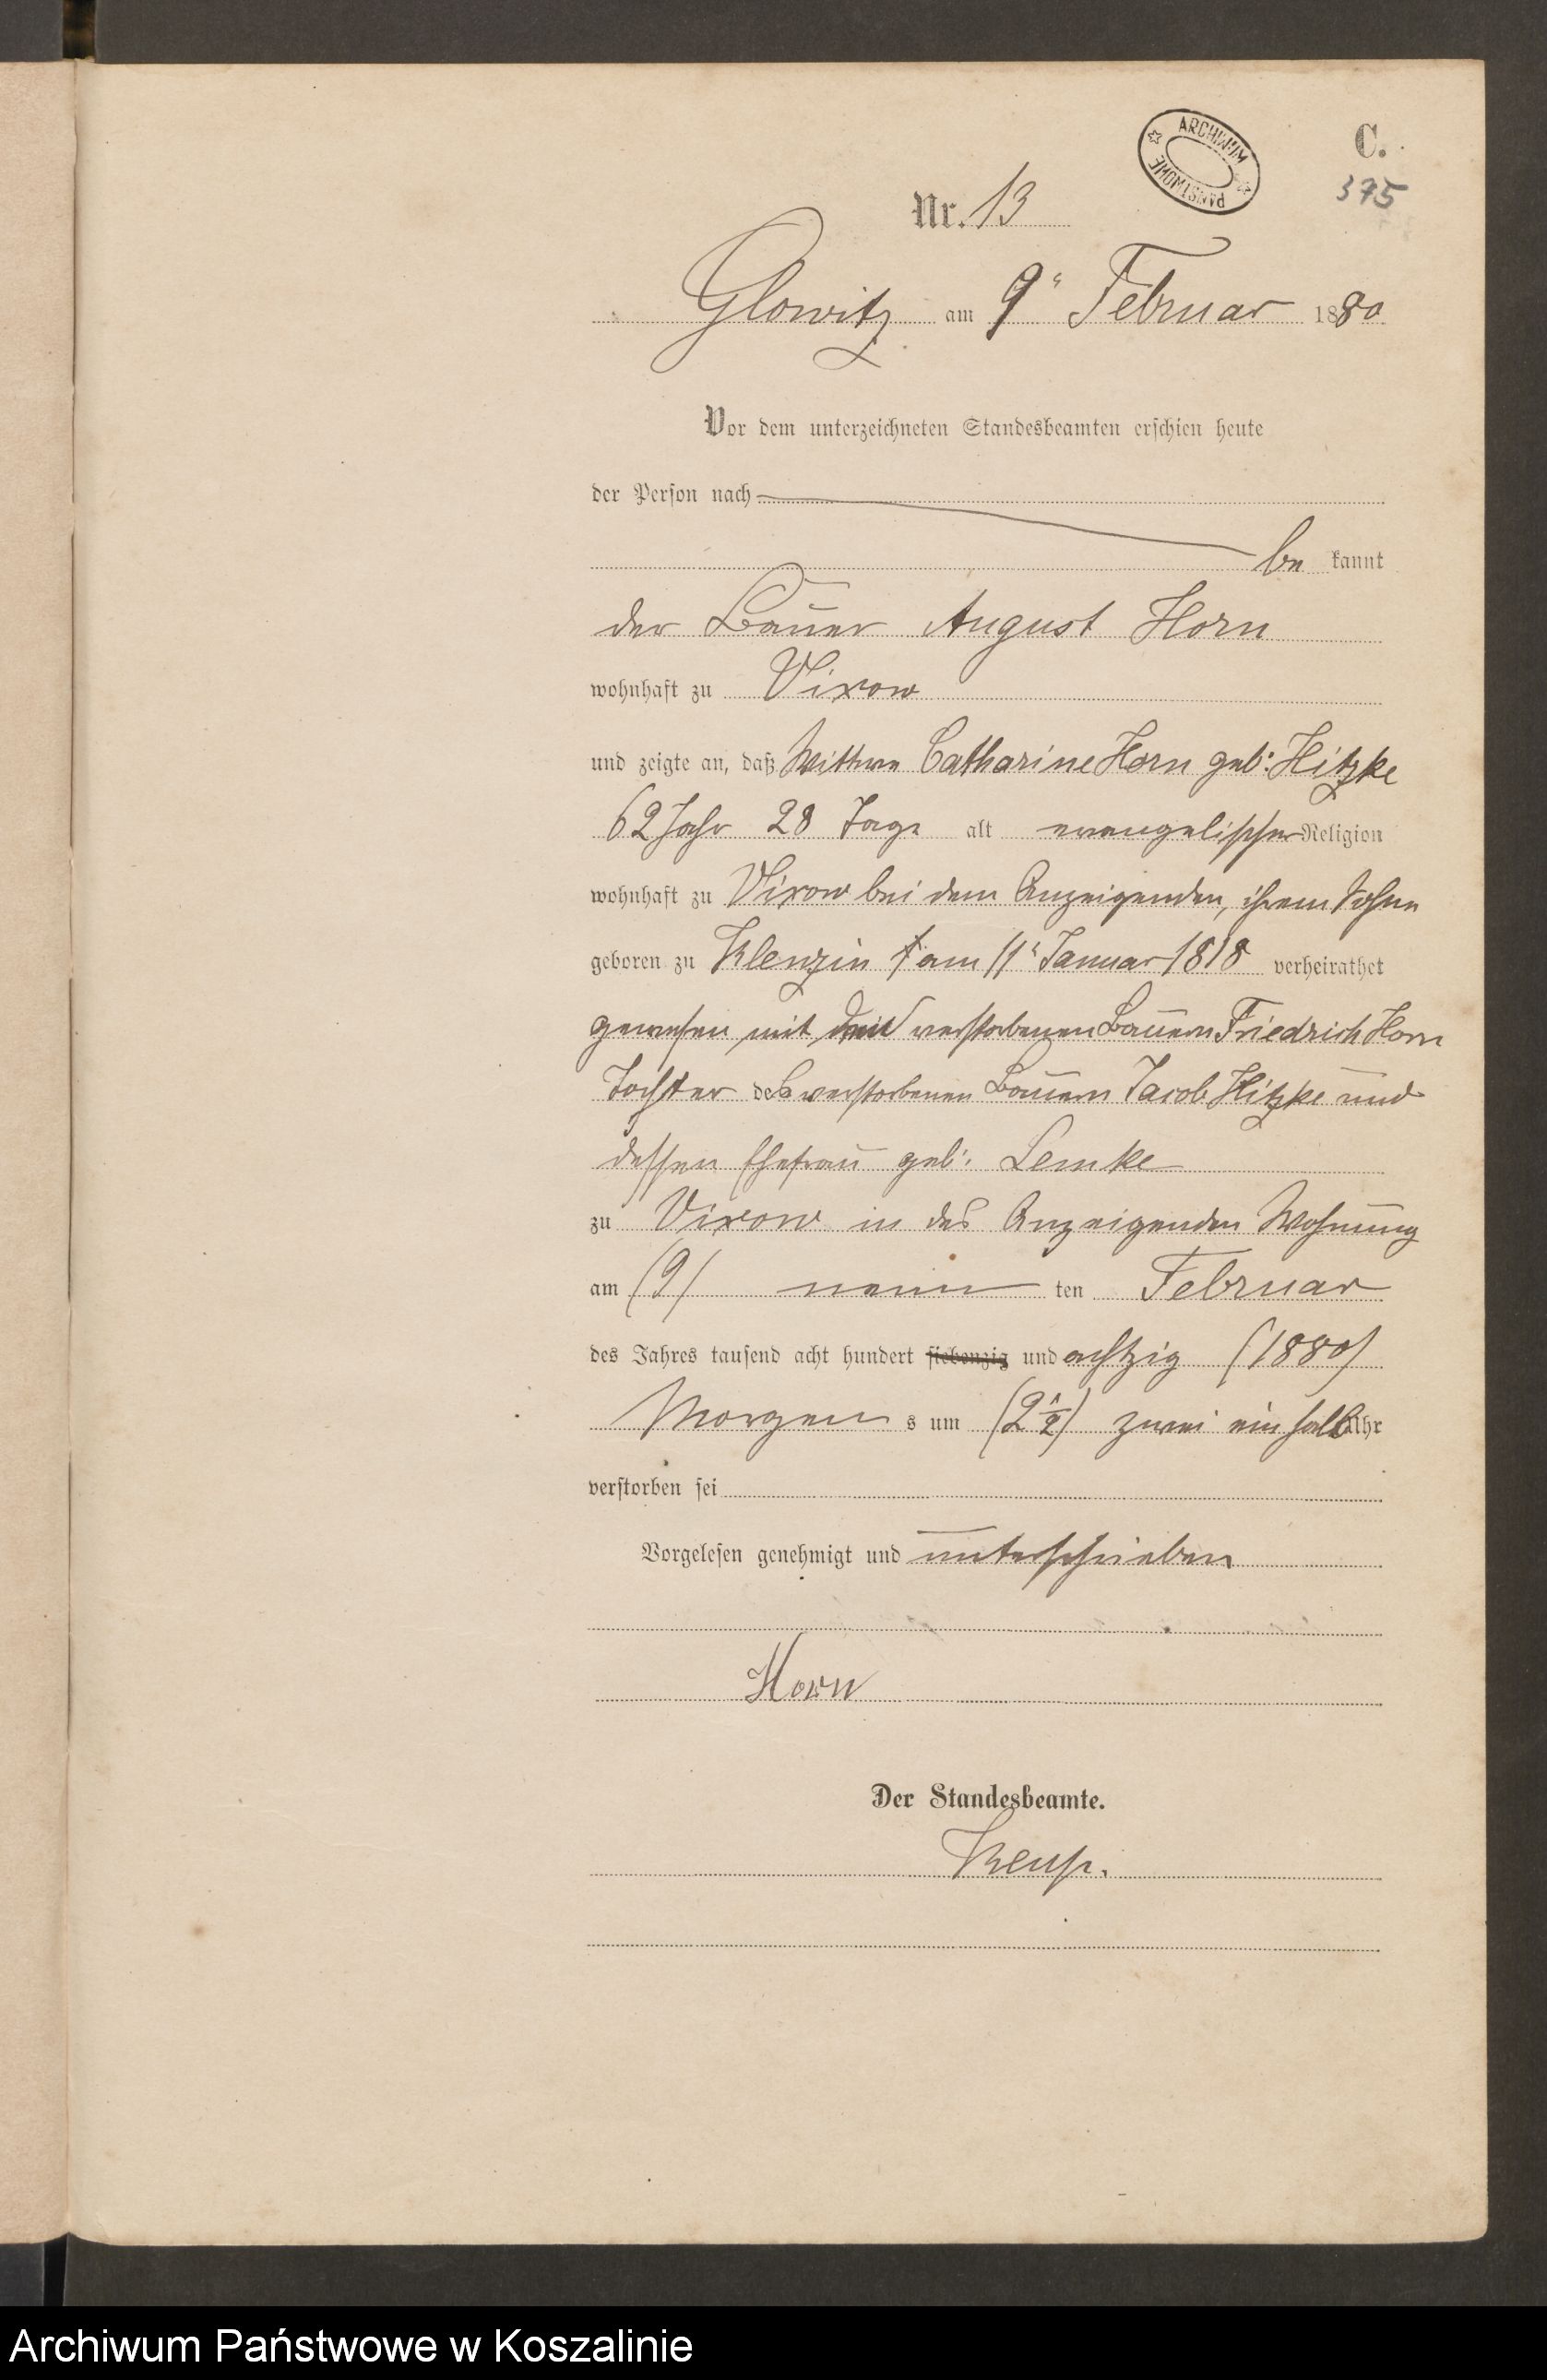 ARCHIWUM PAŃSTWOWE
C.
375
Nr. 13
Glowitz am 9ᵗ Februar 1880
Vor dem unterzeichneten Standesbeamten erschien heute
der Person nach
be kannt
der Bauer August Horn
wohnhaft zu Vixow
und zeigte an, daß Wittwe Catharine Horn geb. Hitzke
62 Jahr 28 Tage alt evangelischer Religion
wohnhaft zu Vixow bei dem Anzeigenden, ihrem Sohne
geboren zu Klenzin am 11ᵗ Januar 1818 verheirathet
gewesen mit dem verstorbenen Bauern Friedrich Horn
Tochter des verstorbenen Bauern Jacob Hitzke und
dessen Ehefrau geb. Lemke
zu Vixow in des Anzeigenden Wohnung
am (9) neun ten Februar
des Jahres tausend acht hundert siebenzig und achtzig (1880)
Morgen s um (2½) zwei ein halb Uhr
verstorben sei
Vorgelesen genehmigt und unterschrieben
Horn
Der Standesbeamte.
Archiwum Państwowe w Koszalinie